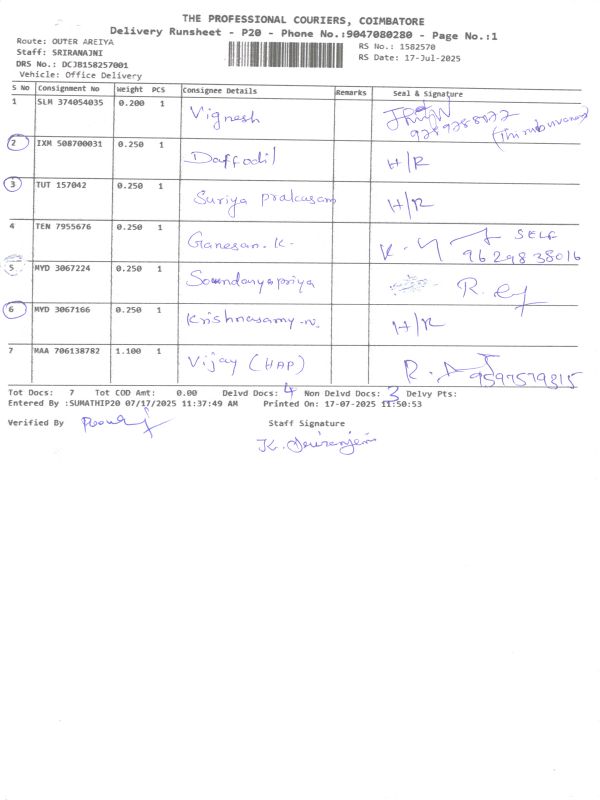 THE PROFESSIONAL COURIERS, COIMBATORE
Delivery Runsheet - P20 - Phone No.:9047080280 - Page No.:1
Route: OUTER AREIYA
RS No.: 1582570
Staff: SRIRANAJNI
RS Date: 17-Jul-2025
DRS No.: DCJB158257001
Vehicle: Office Delivery
S No Consignment No Weight PCS Consignee Details Remarks Seal & Signature
1 SLM 374054035 0.200 1 Vignesh
2 IXM 508700031 0.250 1 Daffodil H/R
3 TUT 157042 0.250 1 Suriya prakasam H/R
4 TEN 7955676 0.250 1 Ganesan.K. SELF
9629838016
5 MYD 3067224 0.250 1 Soundaryapriya
6 MYD 3067166 0.250 1 Krishnasamy.N. H/R
7 MAA 706138782 1.100 1 Vijay (HAP)
9597579315
Tot Docs: 7 Tot COD Amt: 0.00 Delvd Docs: 4 Non Delvd Docs: 3 Delvy Pts:
Entered By :SUMATHIP20 07/17/2025 11:37:49 AM Printed On: 17-07-2025 11:50:53
Verified By Staff Signature